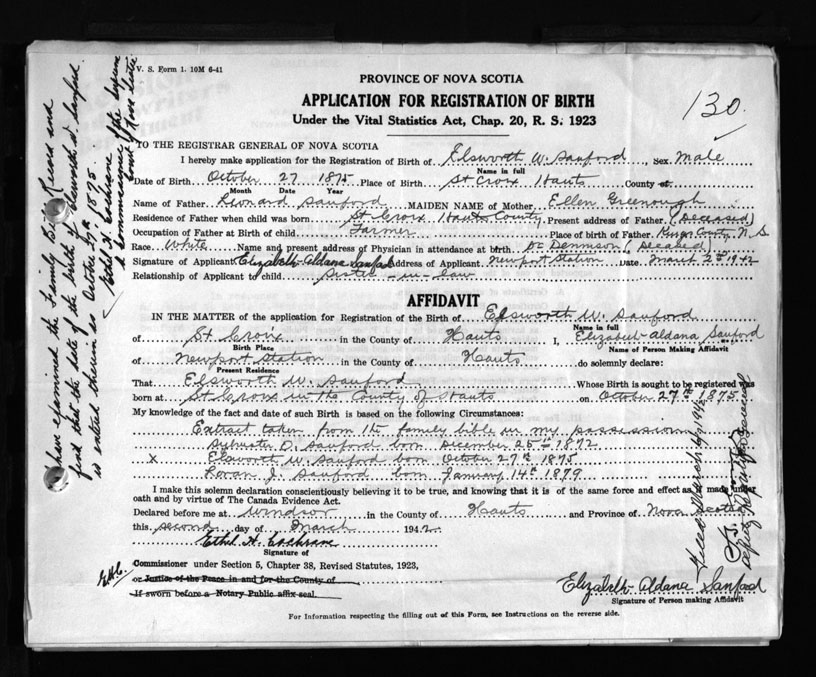 V. S. Form 1. 10M 6-41
PROVINCE OF NOVA SCOTIA
130
APPLICATION FOR REGISTRATION OF BIRTH
Under the Vital Statistics Act, Chap. 20, R. S. 1923
TO THE REGISTRAR GENERAL OF NOVA SCOTIA
I hereby make application for the Registration of Birth of Elsworth W. Sanford, Sex Male
Name in full
Date of Birth October 27 1875 Place of Birth St Croix Hants County of
Month Date Year
Name of Father Leonard Sanford MAIDEN NAME of Mother Ellen Greenough
Residence of Father when child was born St Croix Hants County Present address of Father (Deceased)
Occupation of Father at Birth of child Farmer Place of Birth of Father Kings County N. S.
Race White Name and present address of Physician in attendance at birth Dr Dennison (Deceased)
Signature of Applicant Elizabeth Aldana Sanford Address of Applicant Newport Station Date March 2nd 1942
Relationship of Applicant to child Sister-in-law
AFFIDAVIT
IN THE MATTER of the application for Registration of the Birth of Elsworth W. Sanford
Name in full
of St Croix in the County of Hants I, Elizabeth Aldana Sanford
Birth Place Name of Person Making Affidavit
of Newport Station in the County of Hants do solemnly declare:
Present Residence
That Elsworth W. Sanford Whose Birth is sought to be registered was
born at St Croix in the County of Hants on October 27th 1875
My knowledge of the fact and date of such Birth is based on the following Circumstances:
Extract taken from the family bible in my possession
Sylvester D. Sanford born December 25th 1872
X Elsworth W. Sanford born October 27th 1875
Loran J. Sanford born January 14th 1879
I make this solemn declaration conscientiously believing it to be true, and knowing that it is of the same force and effect as if made under
oath and by virtue of The Canada Evidence Act.
Declared before me at Windsor in the County of Hants and Province of Nova Scotia
this second day of March 1942
Ethel H. Cochrane
Signature of
Commissioner under Section 5, Chapter 38, Revised Statutes, 1923,
EHC
or Justice of the Peace in and for the County of
If sworn before a Notary Public affix seal.
Elizabeth Aldana Sanford
Signature of Person making Affidavit
For Information respecting the filling out of this Form, see Instructions on the reverse side.
I have examined the Family Bible Record and
find that the date of the birth of Elsworth W. Sanford
is entred therein as October 27th 1875.
Ethel H. Cochrane
a Commissioner of the Supreme
Court of Nova Scotia
Filed March 6/1942
Deputy Registrar General